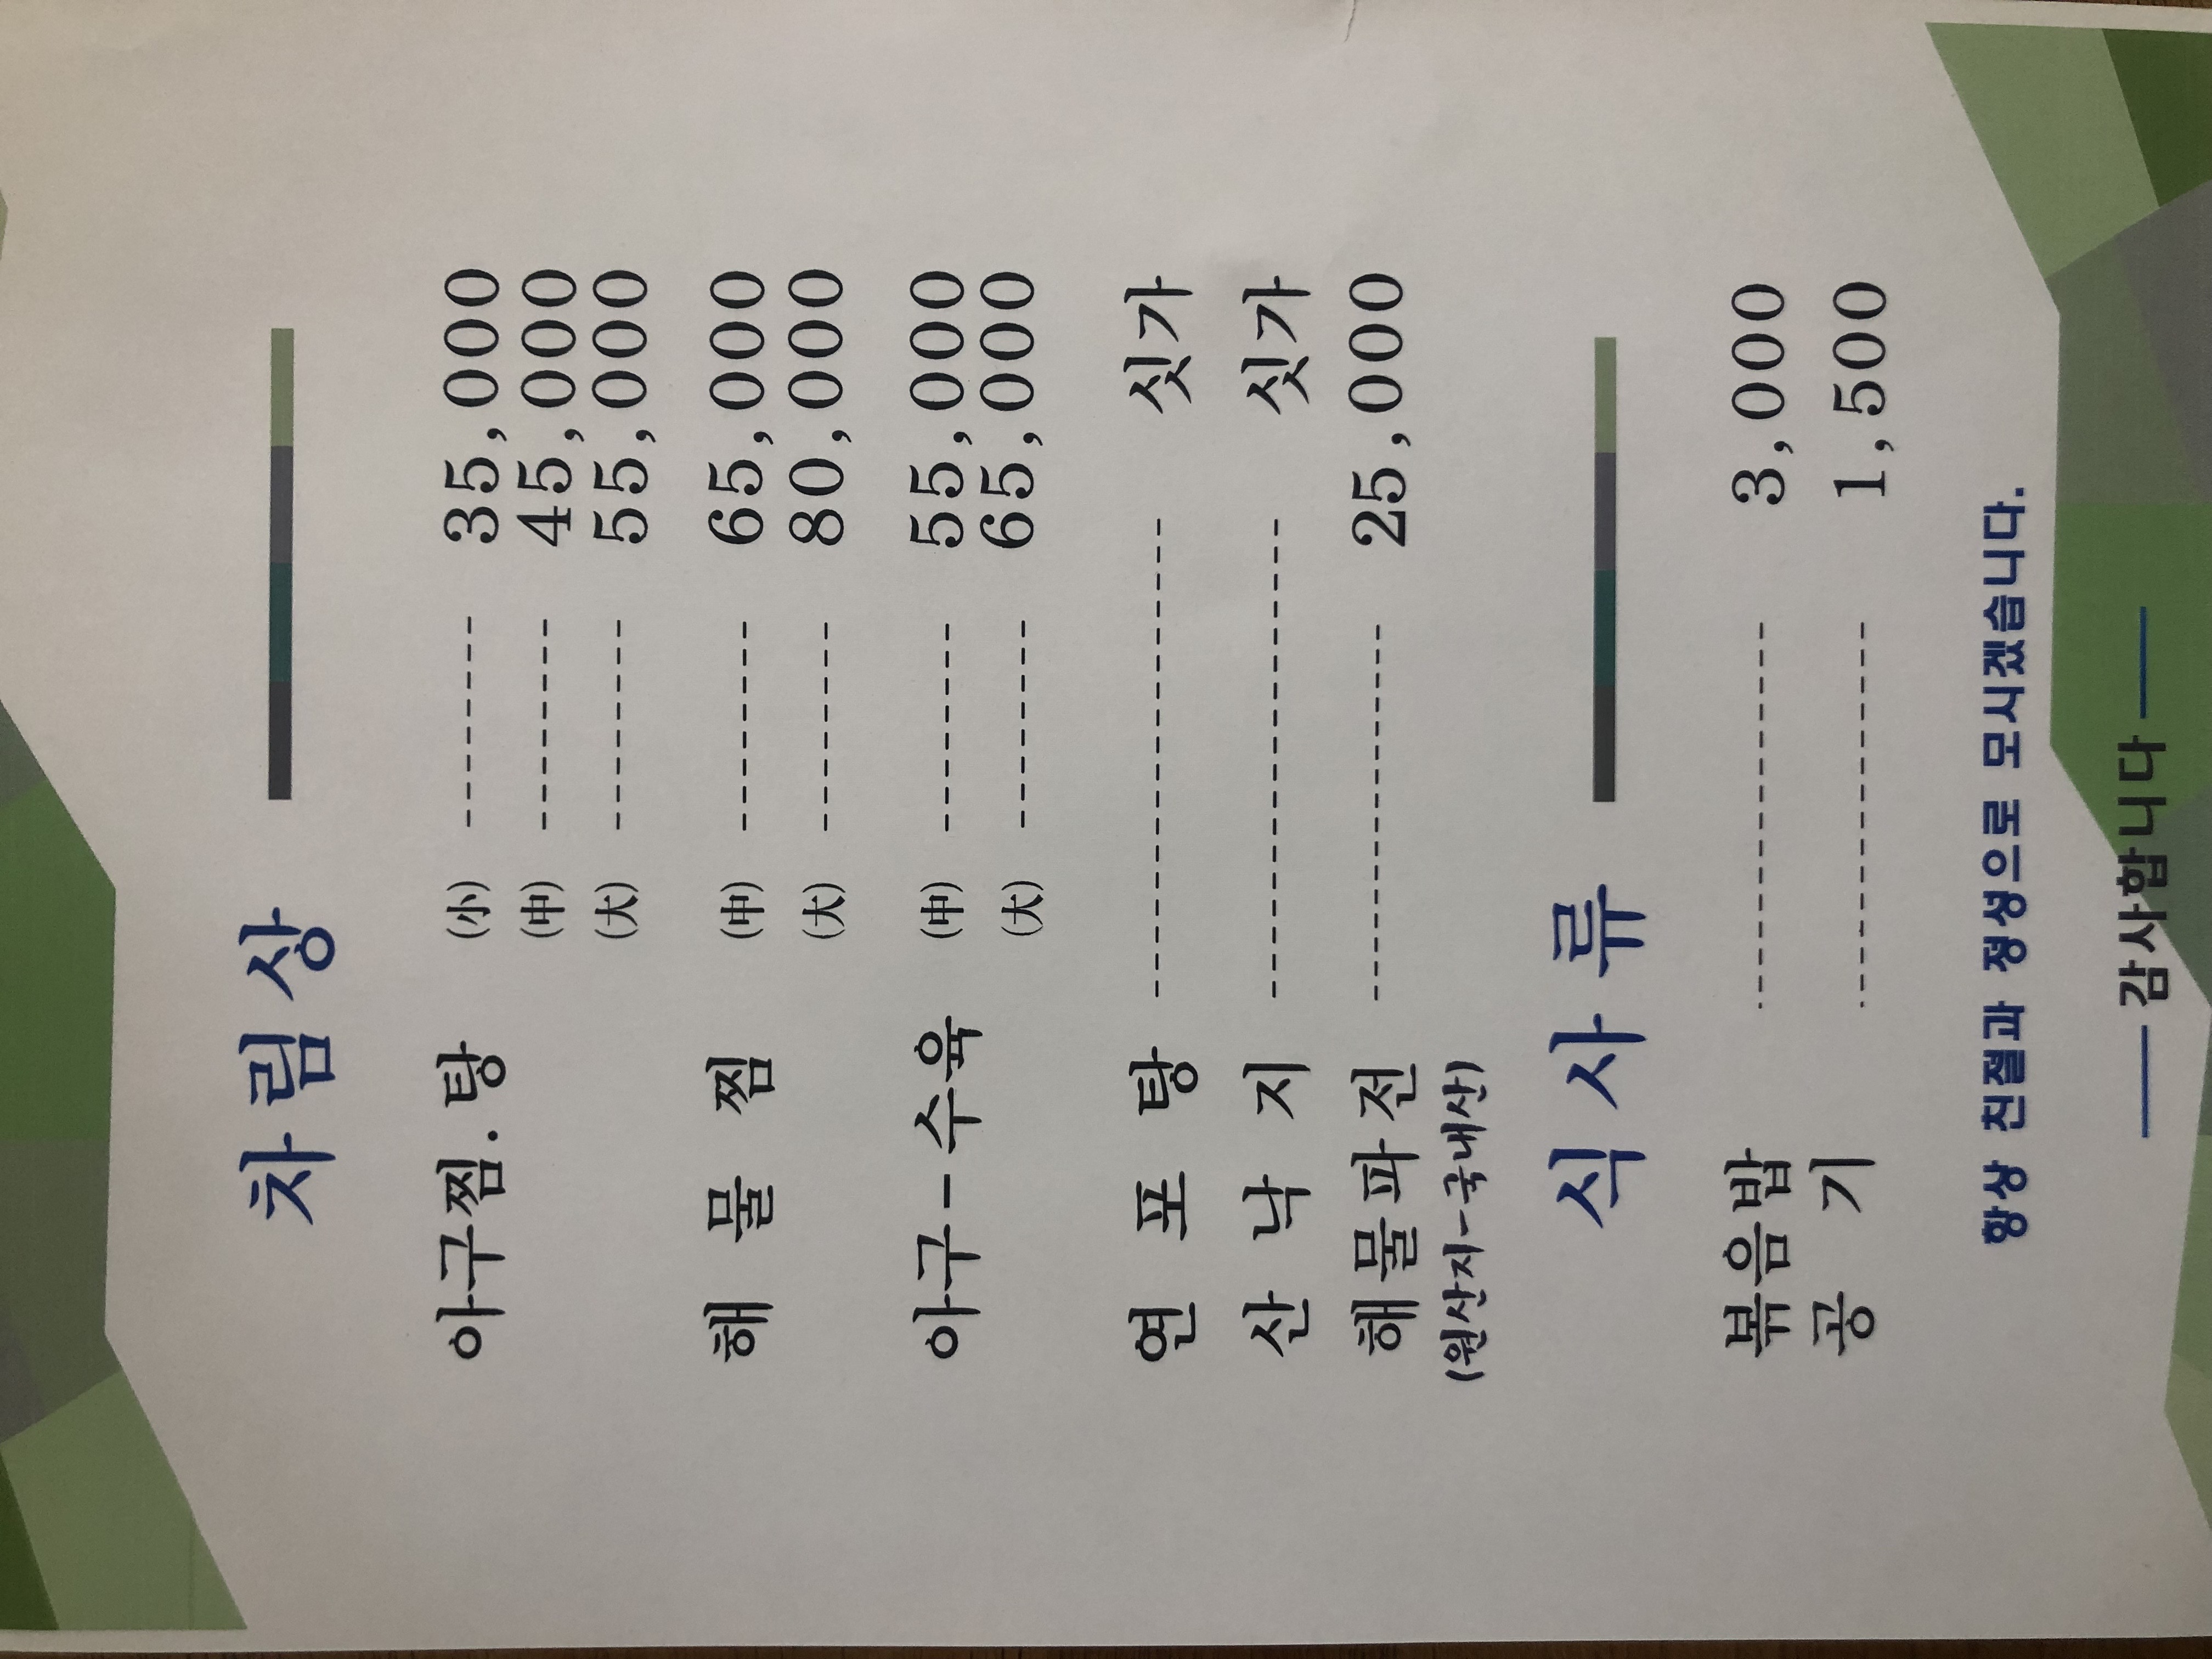 차림상
아구찜.탕 (小) --------- 35,000
(中) --------- 45,000
(大) --------- 55,000
해 물 찜 (中) --------- 65,000
(大) --------- 80,000
아구-수육 (中) --------- 55,000
(大) --------- 65,000
연 포 탕 ------------------- 싯가
산 낙 지 ------------------- 싯가
해물파전 --------------- 25,000
(원산지-국내산)
식사류
볶음밥 --------------- 3,000
공 기 --------------- 1,500
항상 친절과 정성으로 모시겠습니다.
감사합니다